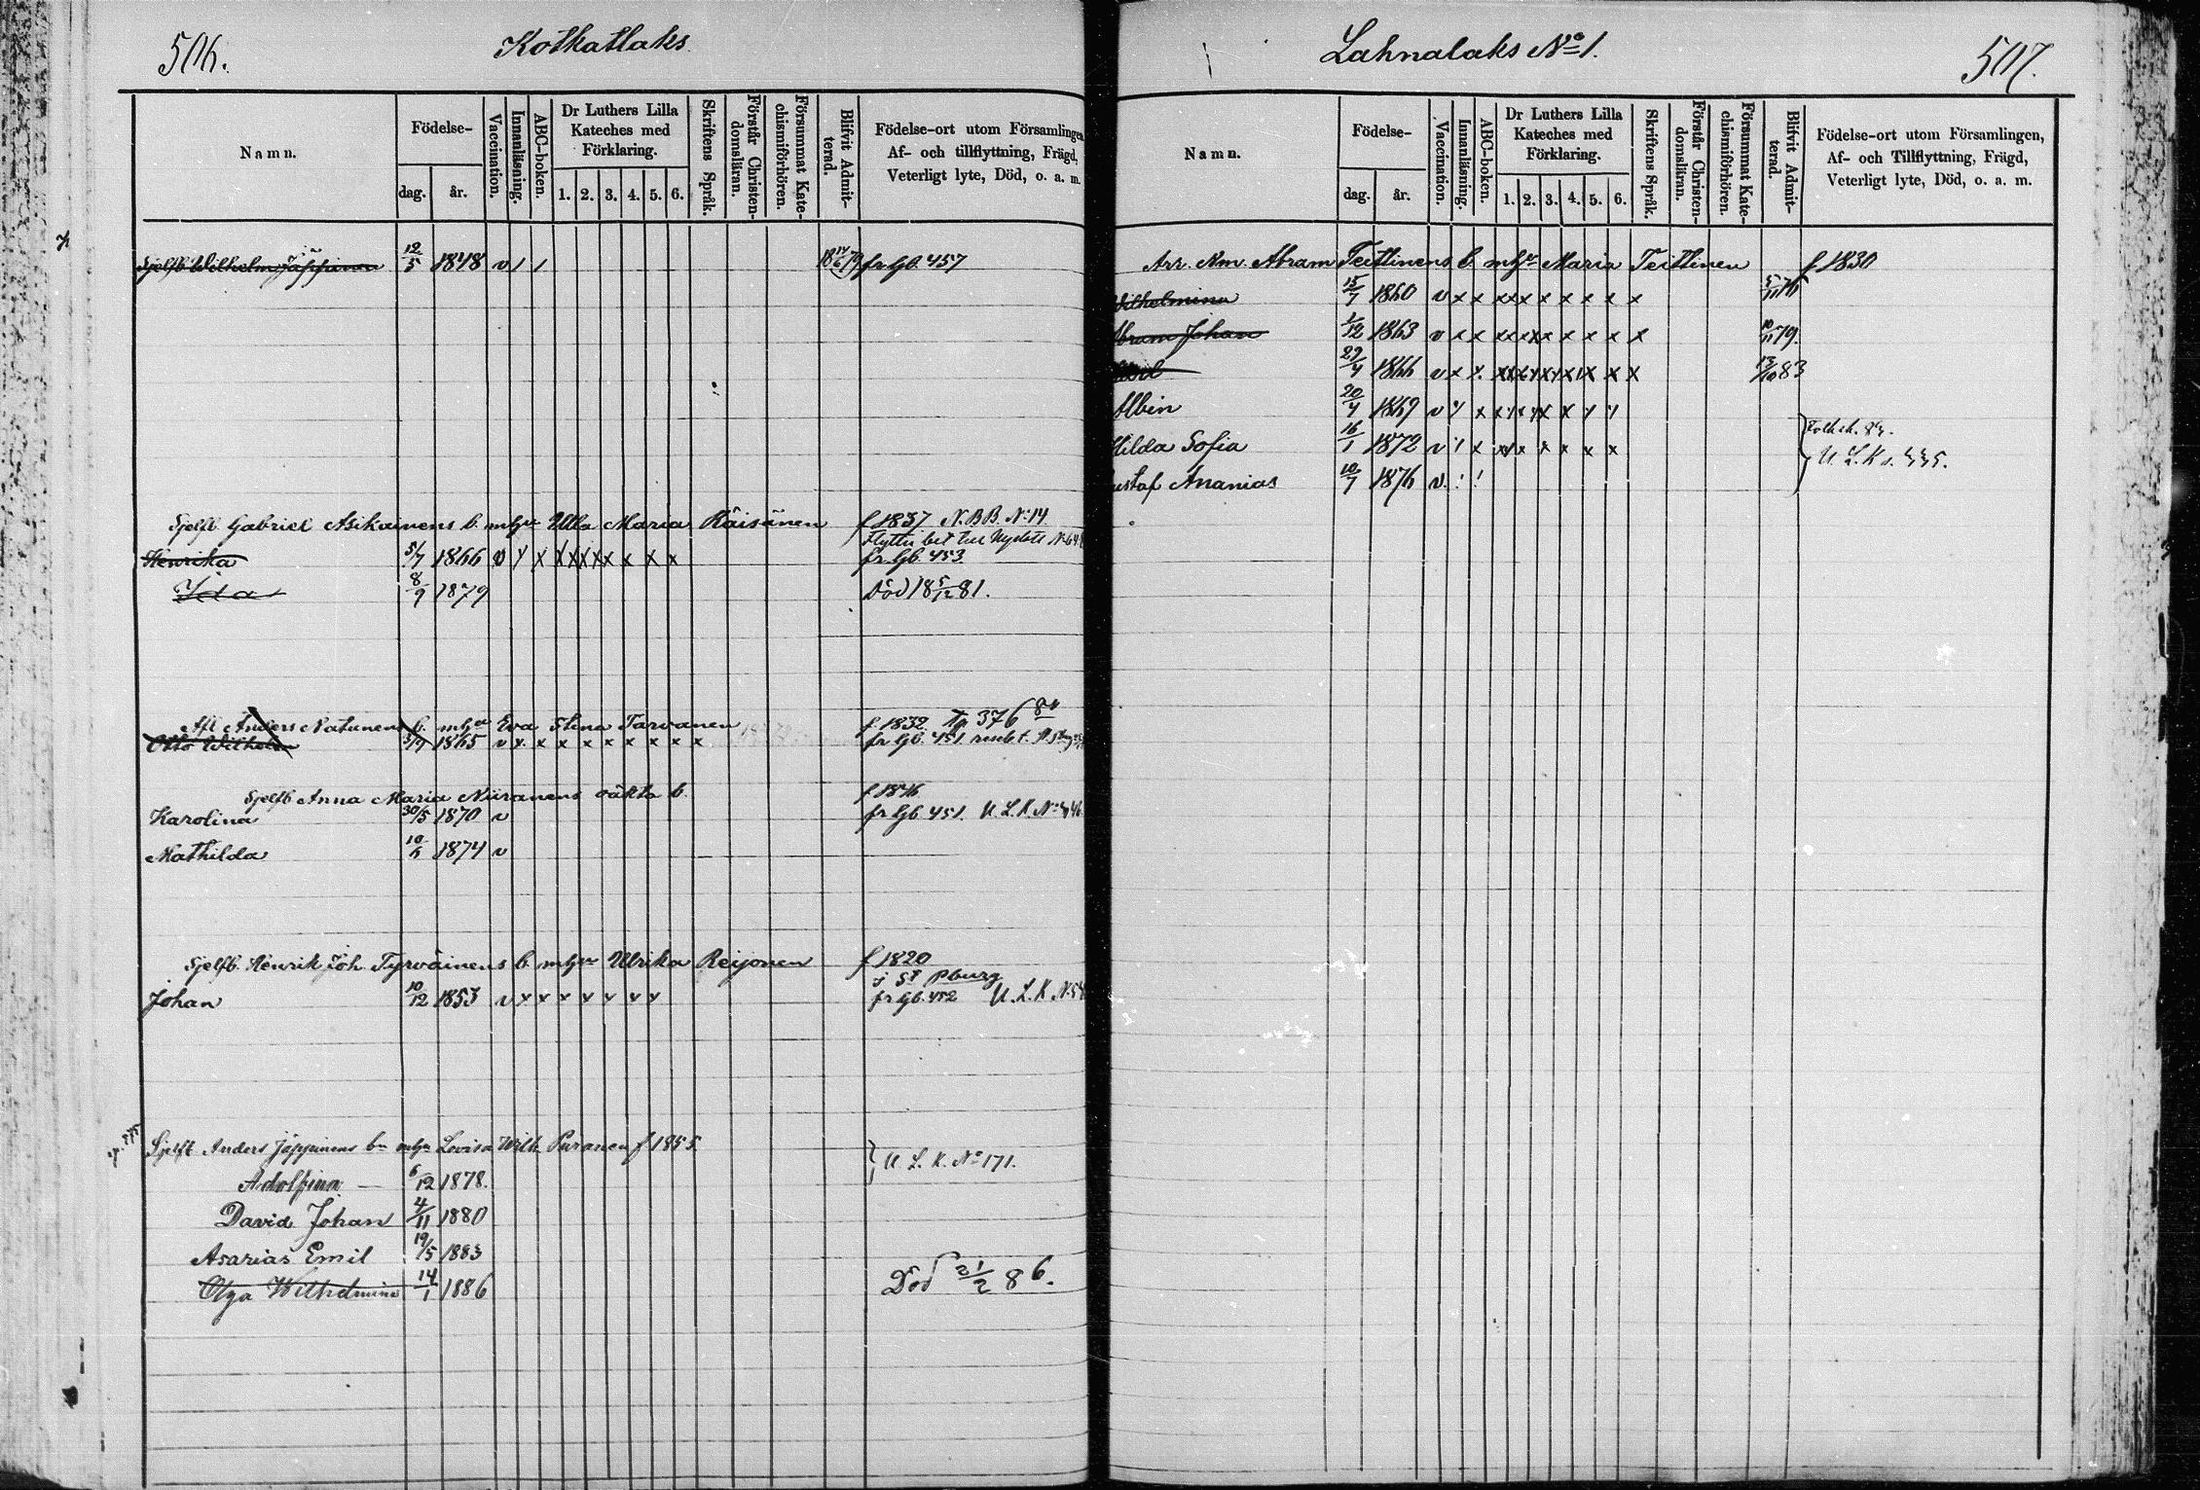 506.
Kotkatlaks
Namn.
Födelse-
dag.
år.
Vaccination.
Innanläsning.
ABC-boken.
Dr Luthers Lilla
Kateches med
Förklaring.
1. 2. 3. 4. 5. 6.
Skriftens Språk.
Förstår Christen-
domsläran.
Försummat Kate-
chismiförhören.
Blifvit Admit-
terad.
Födelse-ort utom Församlingen
Af- och tillflyttning, Frägd,
Veterligt lyte, Död, o. a. m.
Sjelfb Wilhelm Jäppinen 12/5 1848 v / / fr Gb. 457
Sjelfb Gabriel Asikainens b. m hu Ulla Maria Räisänen f 1837 N.B.B. No 14
Henrika 5/7 1866 v / x x x x x x x x x fr Gb. 453
Ida 8/9 1879 Död 18 5/12 81.
Afl Anders Natunens b. m hu Eva Stina Tarvanen f. 1832
Otto Wilhelm 3/9 1865 v x x x x x x x x x fr Gb. 451
Sjelfb Anna Maria Niiranens oäkta b. f 1846
Karolina 30/5 1870 v fr Gb 451. U.L.K. No
Mathilda 1874 v
Sjelfb. Henrik Joh. Tyrväinens b. m hu Ulrika Reijonen f 1820
i St Pburg
Johan 10/12 1853 v x x x x x x x fr Gb. 452 U.L.K. No
Sjelfb Anders Jäppinens bn m hu Lovisa Wilh. Puranen f 1855.
U.L.K. No 171.
Adolfina 6/12 1878.
David Johan 4/11 1880
Asarias Emil 19/5 1883
Olga Wilhelmina 14/1 1886 Död 21/2 86.
Lahnalaks No 1.
507.
Namn.
Födelse-
dag.
år.
Vaccination.
Innanläsning.
ABC-boken.
Dr Luthers Lilla
Kateches med
Förklaring.
1. 2. 3. 4. 5. 6.
Skriftens Språk.
Förstår Christen-
domsläran.
Försummat Kate-
chismiförhören.
Blifvit Admit-
terad.
Födelse-ort utom Församlingen,
Af- och Tillflyttning, Frägd,
Veterligt lyte, Död, o. a. m.
Arr. Nm. Abram Teittinens b. m hu Maria Teittinen f 1830
Wilhelmina 15/7 1860 v x x x x x x x x x x
Abram Johan 1/12 1863 v x x x x x x x x x x 10/11 79.
29/4 1866 v x x x x x x x x x x 13/10 83
Albin 20/4 1869 v x x x x x x x x x
Hilda Sofia 16/1 1872 v / x x x x x x x
U.L.K.
Gustaf Ananias 10/7 1876 v / /